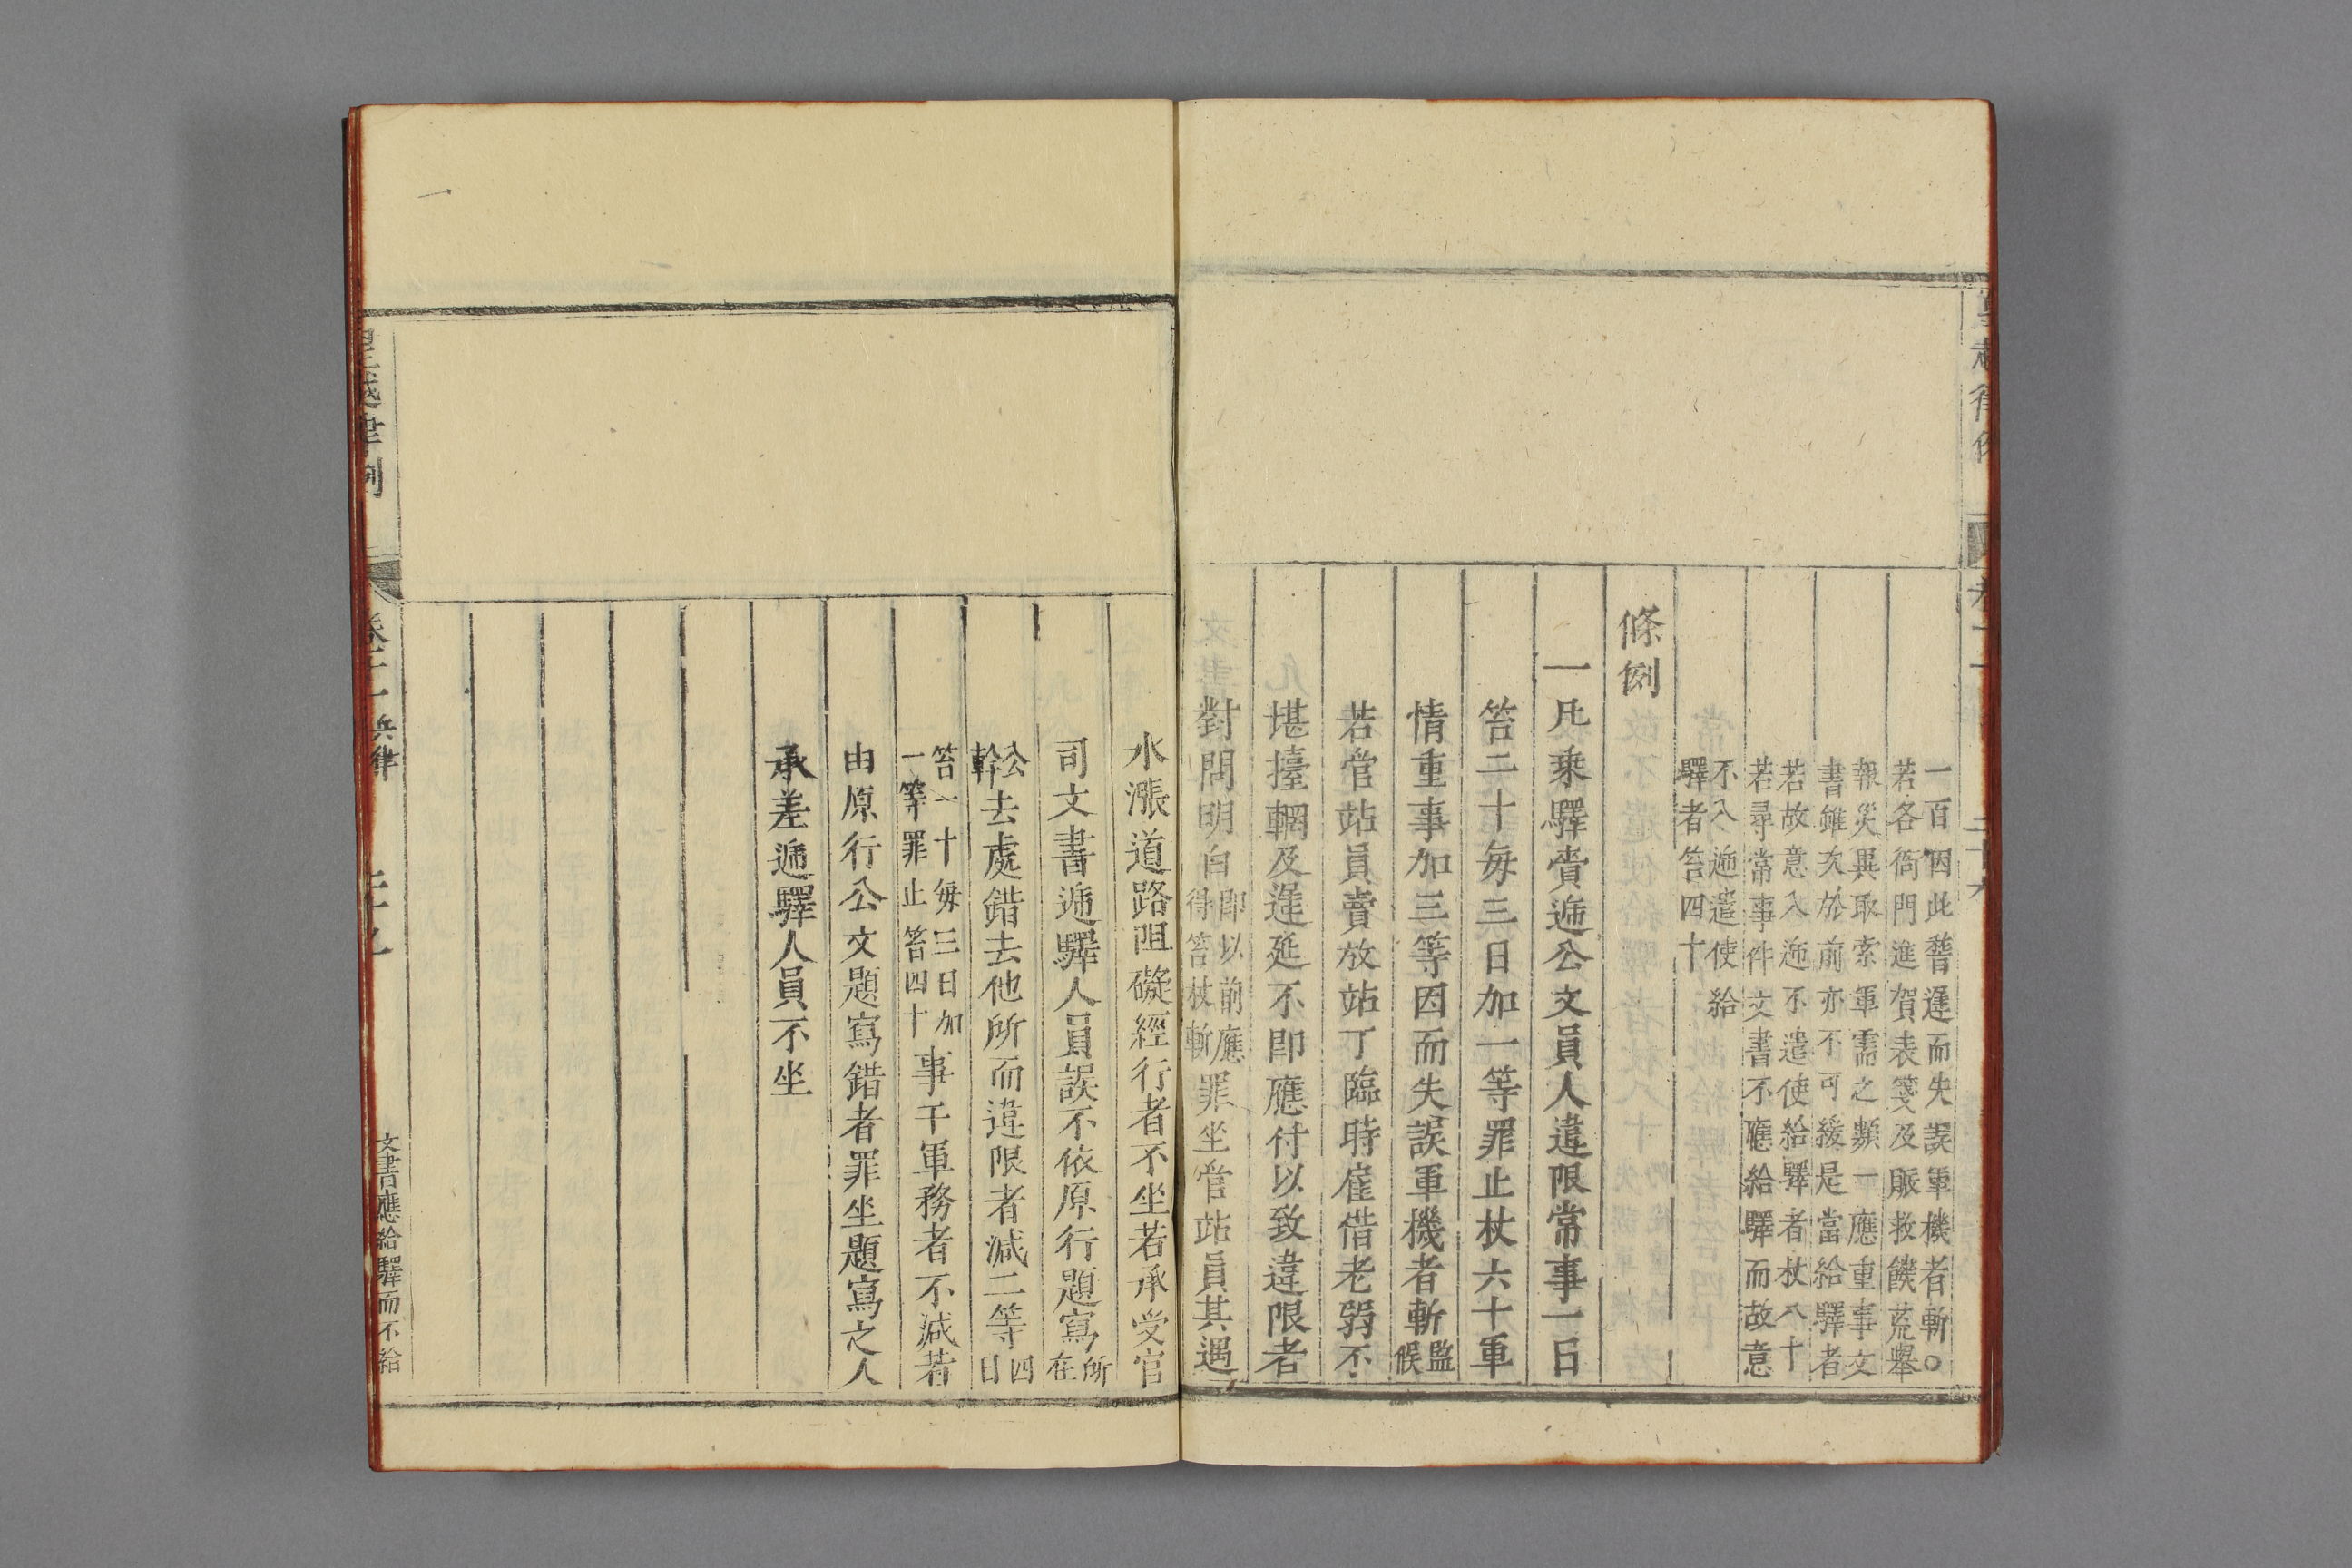 一百因此𦾨遲而失誤軍機者斬○
若各衙門進賀表箋及賑救饑荒舉
報災異取索軍需之類一應重事文
書雖次於前亦不可緩是當給驛者
若故意入遞不遣使給驛者杖八十
若尋常事件文書不應給驛而故意
不入遞遣使給
驛者笞四十
條例
一凡乘驛賫遞公文員人違限常事一日
笞二十每三日加一等罪止杖六十軍
情重事加三等因而失誤軍機者斬監
候
若管站員賣放站丁臨時雇借老弱不
堪擡輞及遲延不即應付以致違限者
對問明白即以前應
得笞杖斬罪坐管站員其遇
水漲道路阻礙經行者不坐若承受官
司文書遞驛人員誤不依原行題寫所
在
公
幹去處錯去他所而違限者減二等四
日
笞一十每三日加
一等罪止笞四十事干軍務者不減若
由原行公文題寫錯者罪坐題寫之人
承差遞驛人員不坐
皇越律例
卷二十一
兵律
二十九
文書應給驛而不給
一